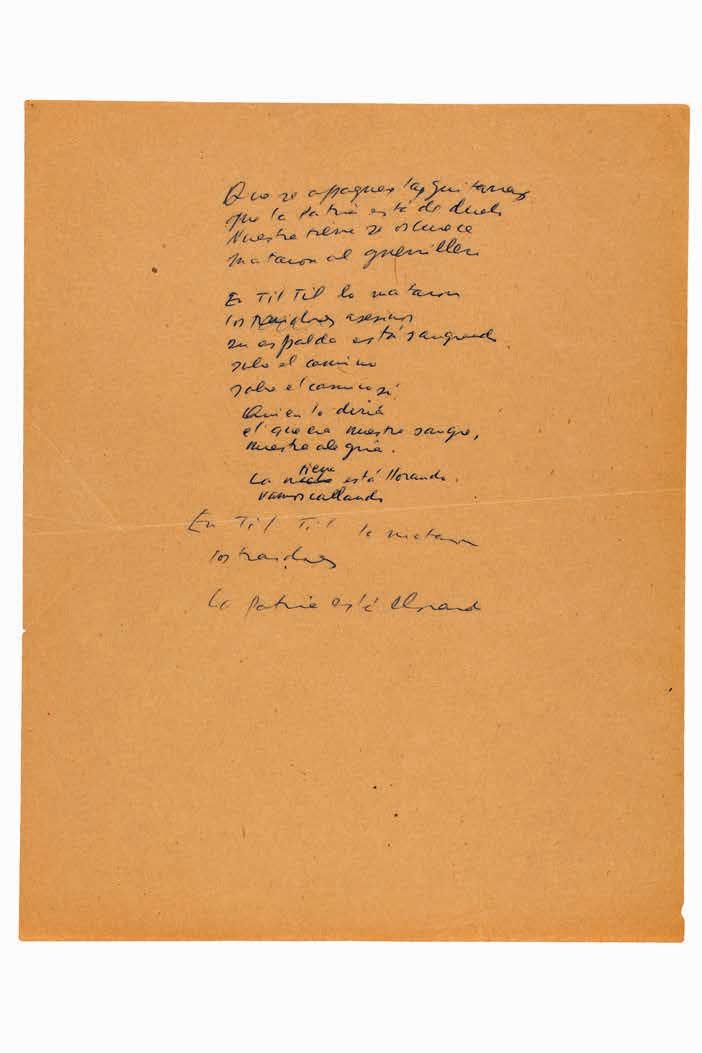 Que se apaguen las guitarras
que la Patria está de duelo
Nuestra tierra se oscurece
mataron al guerrillero
En Til Til lo mataron
los asesinos
su espalda está sangrando
sobre el camino
sobre el camino sí
Quien lo diría
el que era nuestra sangre,
nuestra alegría.
La tierra está llorando.
vamos callando
En Til Til lo mataron
los traidores
La patria está llorand